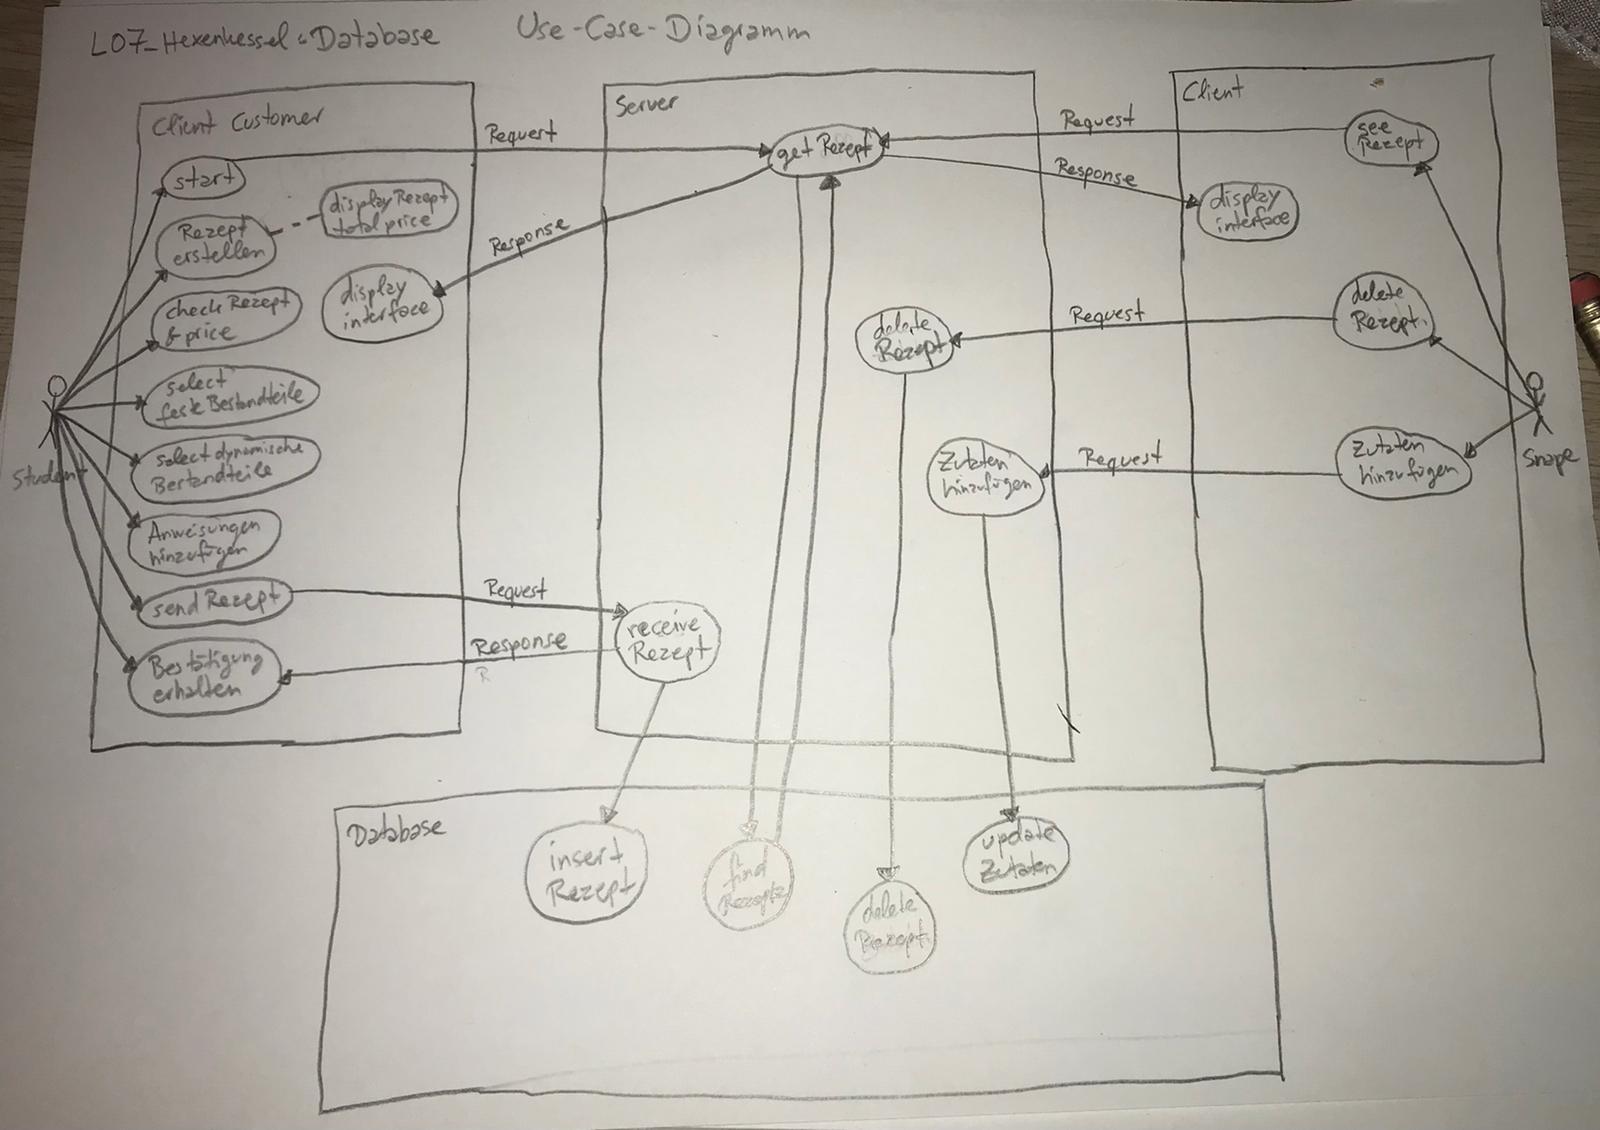 L07_Hexenkessel-Database
Use-Case-Diagramm
Client Customer
start
Rezept
erstellen
display Rezept
total price
check Rezept
& price
display
interface
select
feste Bestandteile
select dynamische
Bestandteile
Anweisungen
hinzufügen
send Rezept
Bestätigung
erhalten
Student
Request
Response
Request
Response
R
Server
get Rezept
delete
Rezept
Zutaten
hinzufügen
receive
Rezept
Request
Response
Request
Request
Client
see
Rezept
display
interface
delete
Rezept.
Zutaten
hinzufügen
Snape
Database
insert
Rezept
find
Rezepte
delete
Rezept.
update
Zutaten